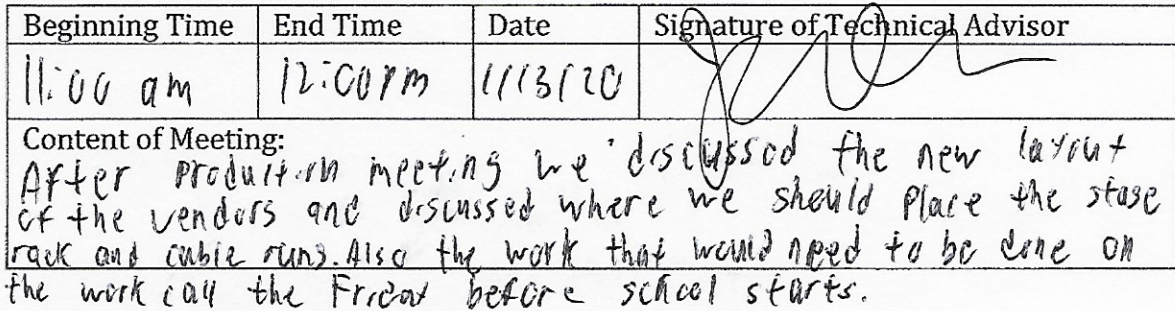 Beginning Time End Time Date Signature of Technical Advisor
11:00 am 12:00 PM 1/13/20
Content of Meeting:
After production meeting we discussed the new layout
of the vendors and discussed where we should place the stage
rack and cable runs. Also the work that would need to be done on
the work call the Friday before school starts.